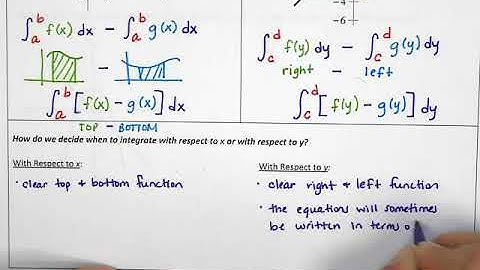 -4
-6
∫_a^b f(x) dx - ∫_a^b g(x) dx
-
∫_a^b [f(x) - g(x)] dx
TOP - BOTTOM
∫_c^d f(y) dy - ∫_c^d g(y) dy
right - left
∫_c^d [f(y) - g(y)] dy
How do we decide when to integrate with respect to x or with respect to y?
With Respect to x:
• clear top & bottom function
With Respect to y:
• clear right & left function
• the equations will sometimes
be written in terms o